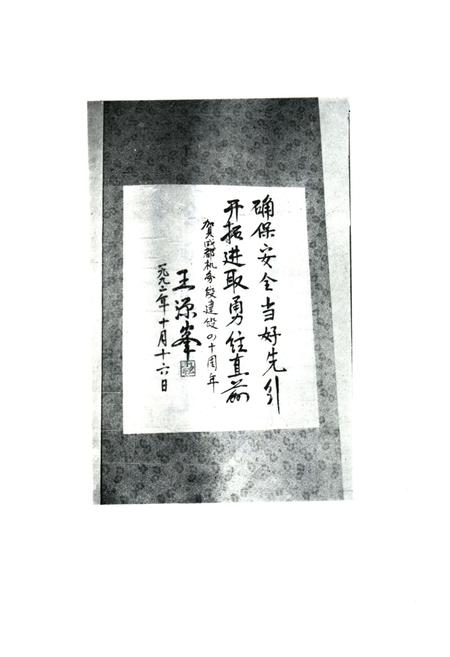 确保安全当好先引
开拓进取勇往直前
贺成都机务段建段四十周年
王源峰
一九九二年十月十六日